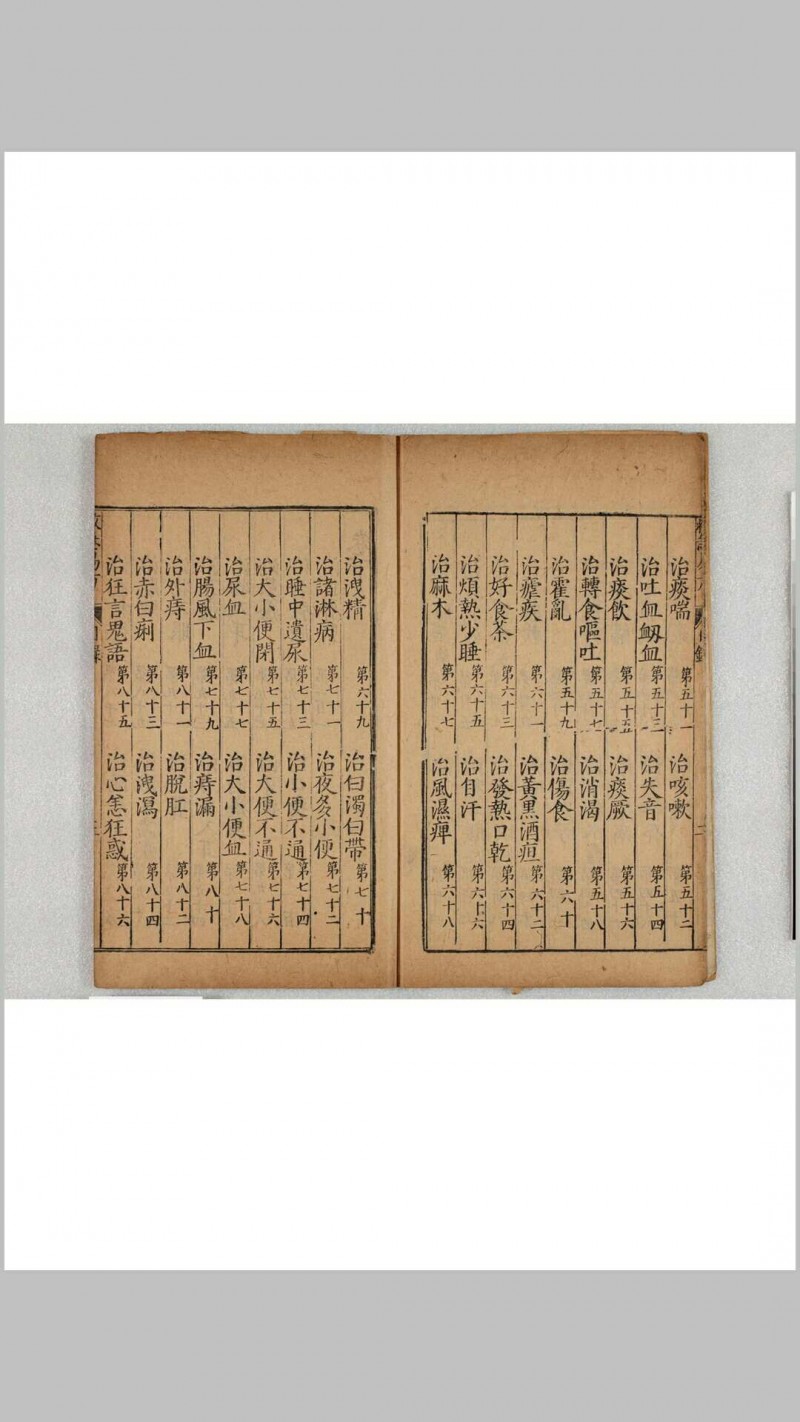 治痰喘 第五十一 治咳嗽 第五十二
治吐血衂血 第五十三 治失音 第五十四
治痰飲 第五十五 治痰厥 第五十六
治轉食嘔吐 第五十七 治消渴 第五十八
治霍亂 第五十九 治傷食 第六十
治瘧疾 第六十一 治黃黑酒疸 第六十二
治好食茶 第六十三 治發熱口乾 第六十四
治煩熱少睡 第六十五 治自汗 第六十六
治麻木 第六十七 治風濕痺 第六十八
治洩精 第六十九 治白濁白帶 第七十
治諸淋病 第七十一 治夜多小便 第七十二
治睡中遺尿 第七十三 治小便不通 第七十四
治大小便閉 第七十五 治大便不通 第七十六
治尿血 第七十七 治大小便血 第七十八
治腸風下血 第七十九 治痔漏 第八十
治外痔 第八十一 治脫肛 第八十二
治赤白痢 第八十三 治洩瀉 第八十四
治狂言鬼語 第八十五 治心恙狂惑 第八十六